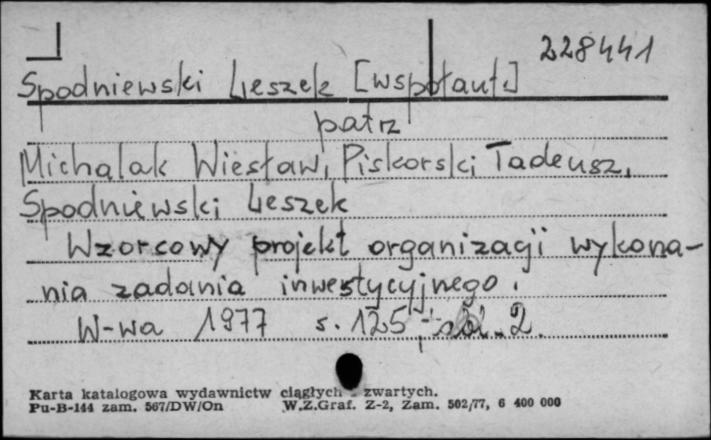 228441
Spodniewski Leszek [współaut.]
patrz
Michalak Wiesław, Piskorski Tadeusz,
Spodniewski Leszek
Wzorcowy projekt organizacji wykona-
nia zadania inwestycyjnego.
W-wa 1977 s. 125, 2
Karta katalogowa wydawnictw ciągłych zwartych.
Pu-B-144 zam. 567/DW/On W.Z.Graf. Z-2, Zam. 502/77, 6 400 000